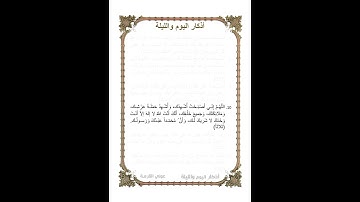 أذكار اليوم والليلة
اللَّهُمَّ إِنِّي أَصْبَحْتُ أُشْهِدُكَ، وَأُشْهِدُ حَمَلَةَ عَرْشِكَ
وَمَلَائِكَتَكَ، وَجَمِيعَ خَلْقِكَ، أَنَّكَ أَنْتَ اللَّهُ لَا إِلَهَ إِلَّا أَنْتَ
وَحْدَكَ لَا شَرِيكَ لَكَ، وَأَنَّ مُحَمَّداً عَبْدُكَ وَرَسُولُكَ.
(ثلاثا)
أذكار اليوم والليلة